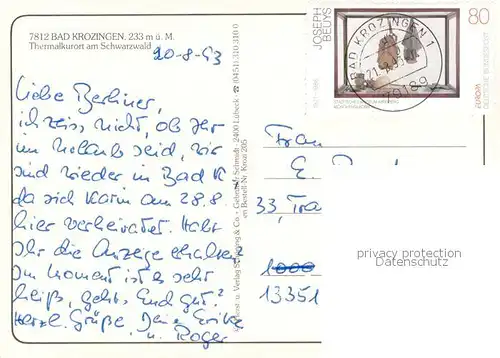 7812 BAD KROZINGEN, 233 m ü. M.
Thermalkurort am Schwarzwald
20-8-93
Liebe Berliner,
ich weiss nicht, ob Ihr
im Urlaub seid, wir
sind wieder in Bad K
da sich Karin am 28.8.
hier verheiratet. Habt
Ihr die Anzeige erhalten?
Im Moment ist es sehr
heiß, geht's Euch gut?
Herzl. Grüße, Deine Erika
u. Roger
2400 Lübeck · ☎ (0451) 310 310 0
Bestell-Nr. Kroz 205
JOSEPH
BEUYS
1921-1986
80
EUROPA
DEUTSCHE BUNDESPOST
BAD KROZINGEN 1
79189
Frau
E.
33, Tra
1000
13351
privacy protection
Datenschutz